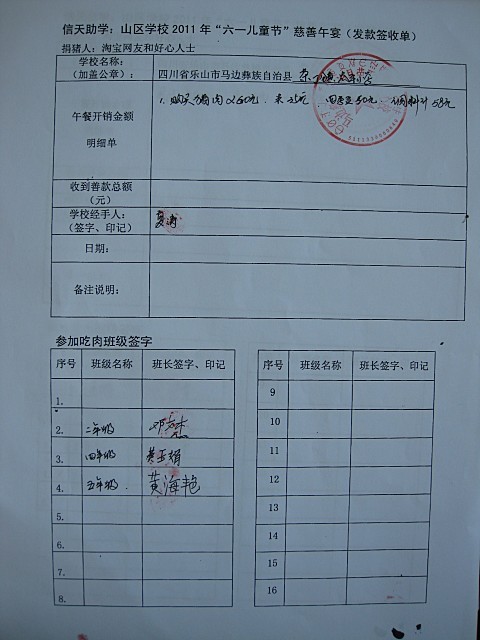 信天助学：山区学校 2011 年“六一儿童节”慈善午宴（发款签收单）
捐猪人：淘宝网友和好心人士
学校名称：
（加盖公章）：
四川省乐山市马边彝族自治县
午餐开销金额
明细单
1. 购买猪肉 260元. 米 25元 50元. 调料计 58元
收到善款总额
（元）
学校经手人：
（签字、印记）
日期：
备注说明：
参加吃肉班级签字
序号 班级名称 班长签字、印记
1.
2. 二年级
3. 四年级 黄玉娟
4. 五年级. 黄海艳
5.
6.
7.
8.
序号 班级名称 班长签字、印记
9
10
11
12
13
14
15
16